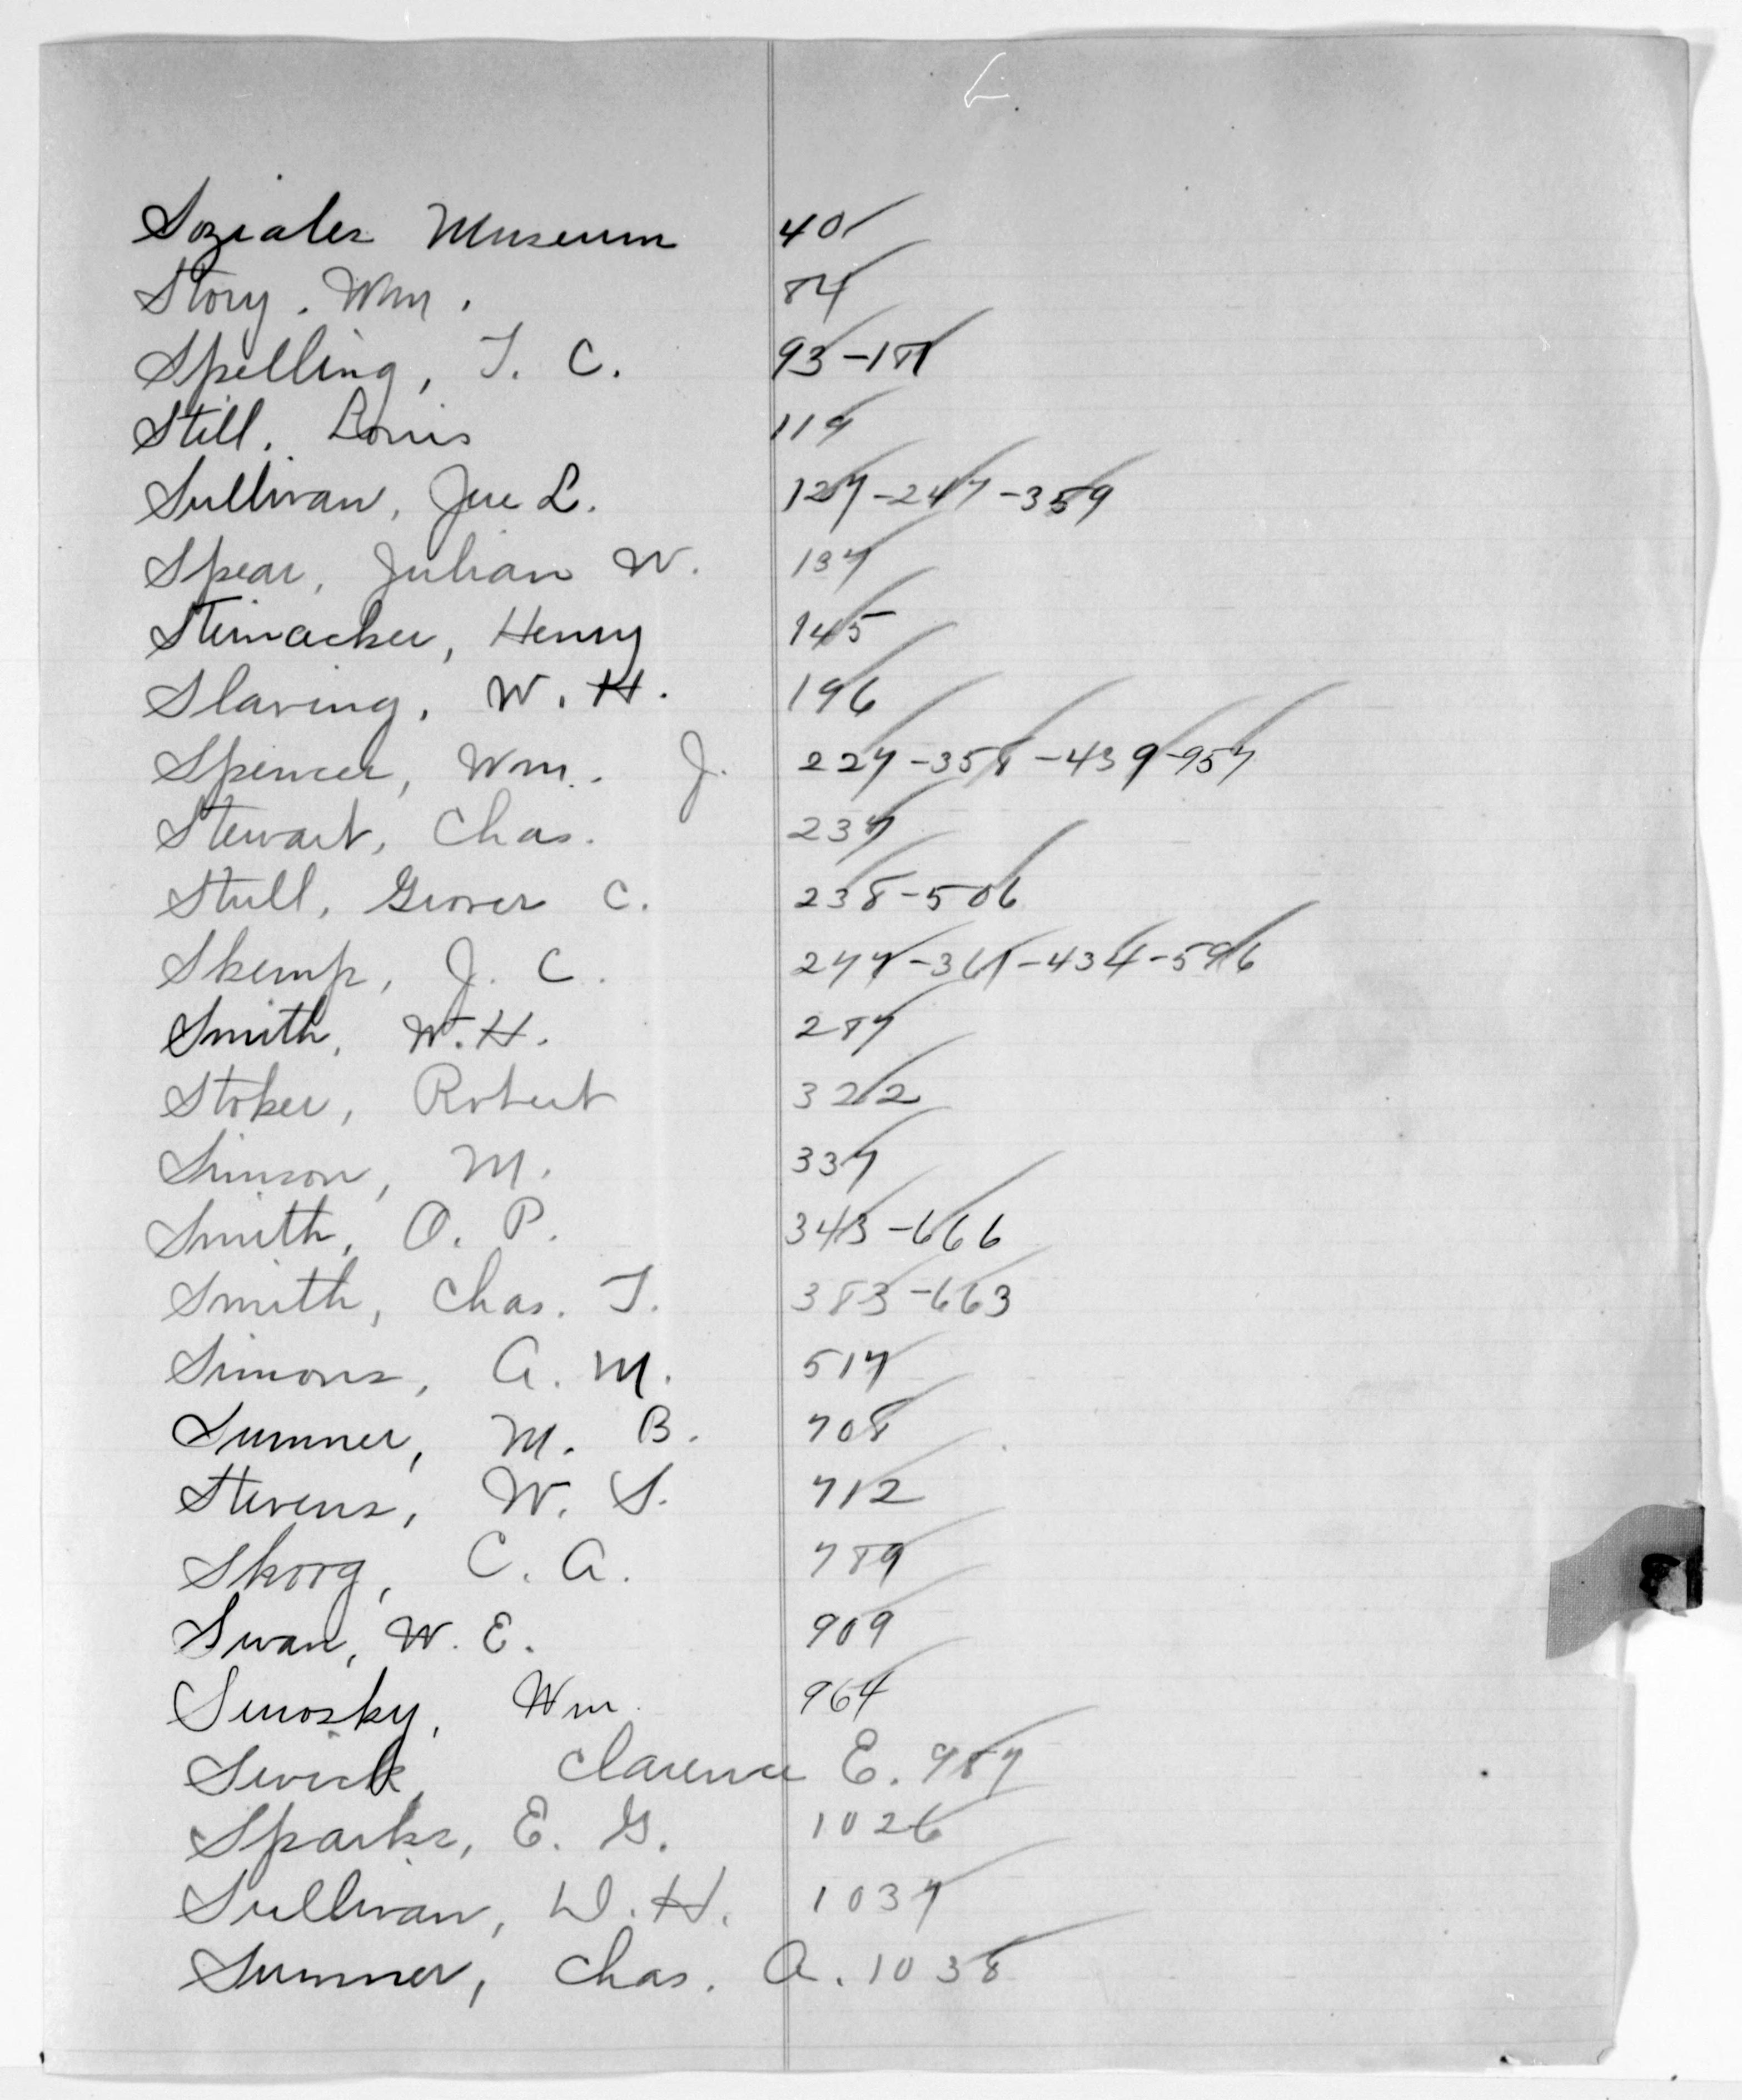 Soziales Museum 40
Story. Wm. 84
Spelling, T. C. 93-181
Still. Louis 119
Sullivan, Jere L. 127-247-359
Spear, Julian W. 137
Steinacker, Henry 145
Slaving, W. H. 196
Spencer, Wm. J. 227-358-439-957
Stewart, Chas. 237
Stull, Grover C. 238-506
Skemp, J. C. 277-361-434-596
Smith, W. H. 287
Stoker, Robert 322
Simson, M. 337
Smith, O. P. 343-666
Smith, Chas. T. 383-663
Simons, A. M. 517
Sumner, M. B. 708
Stevens, W. S. 712
Skoog, C. A. 789
Swan, W. E. 909
Wm. 964
Swick, Clarence E. 987
Sparks, E. G. 1026
Sullivan, D. H. 1037
Sumner, Chas. A. 1038